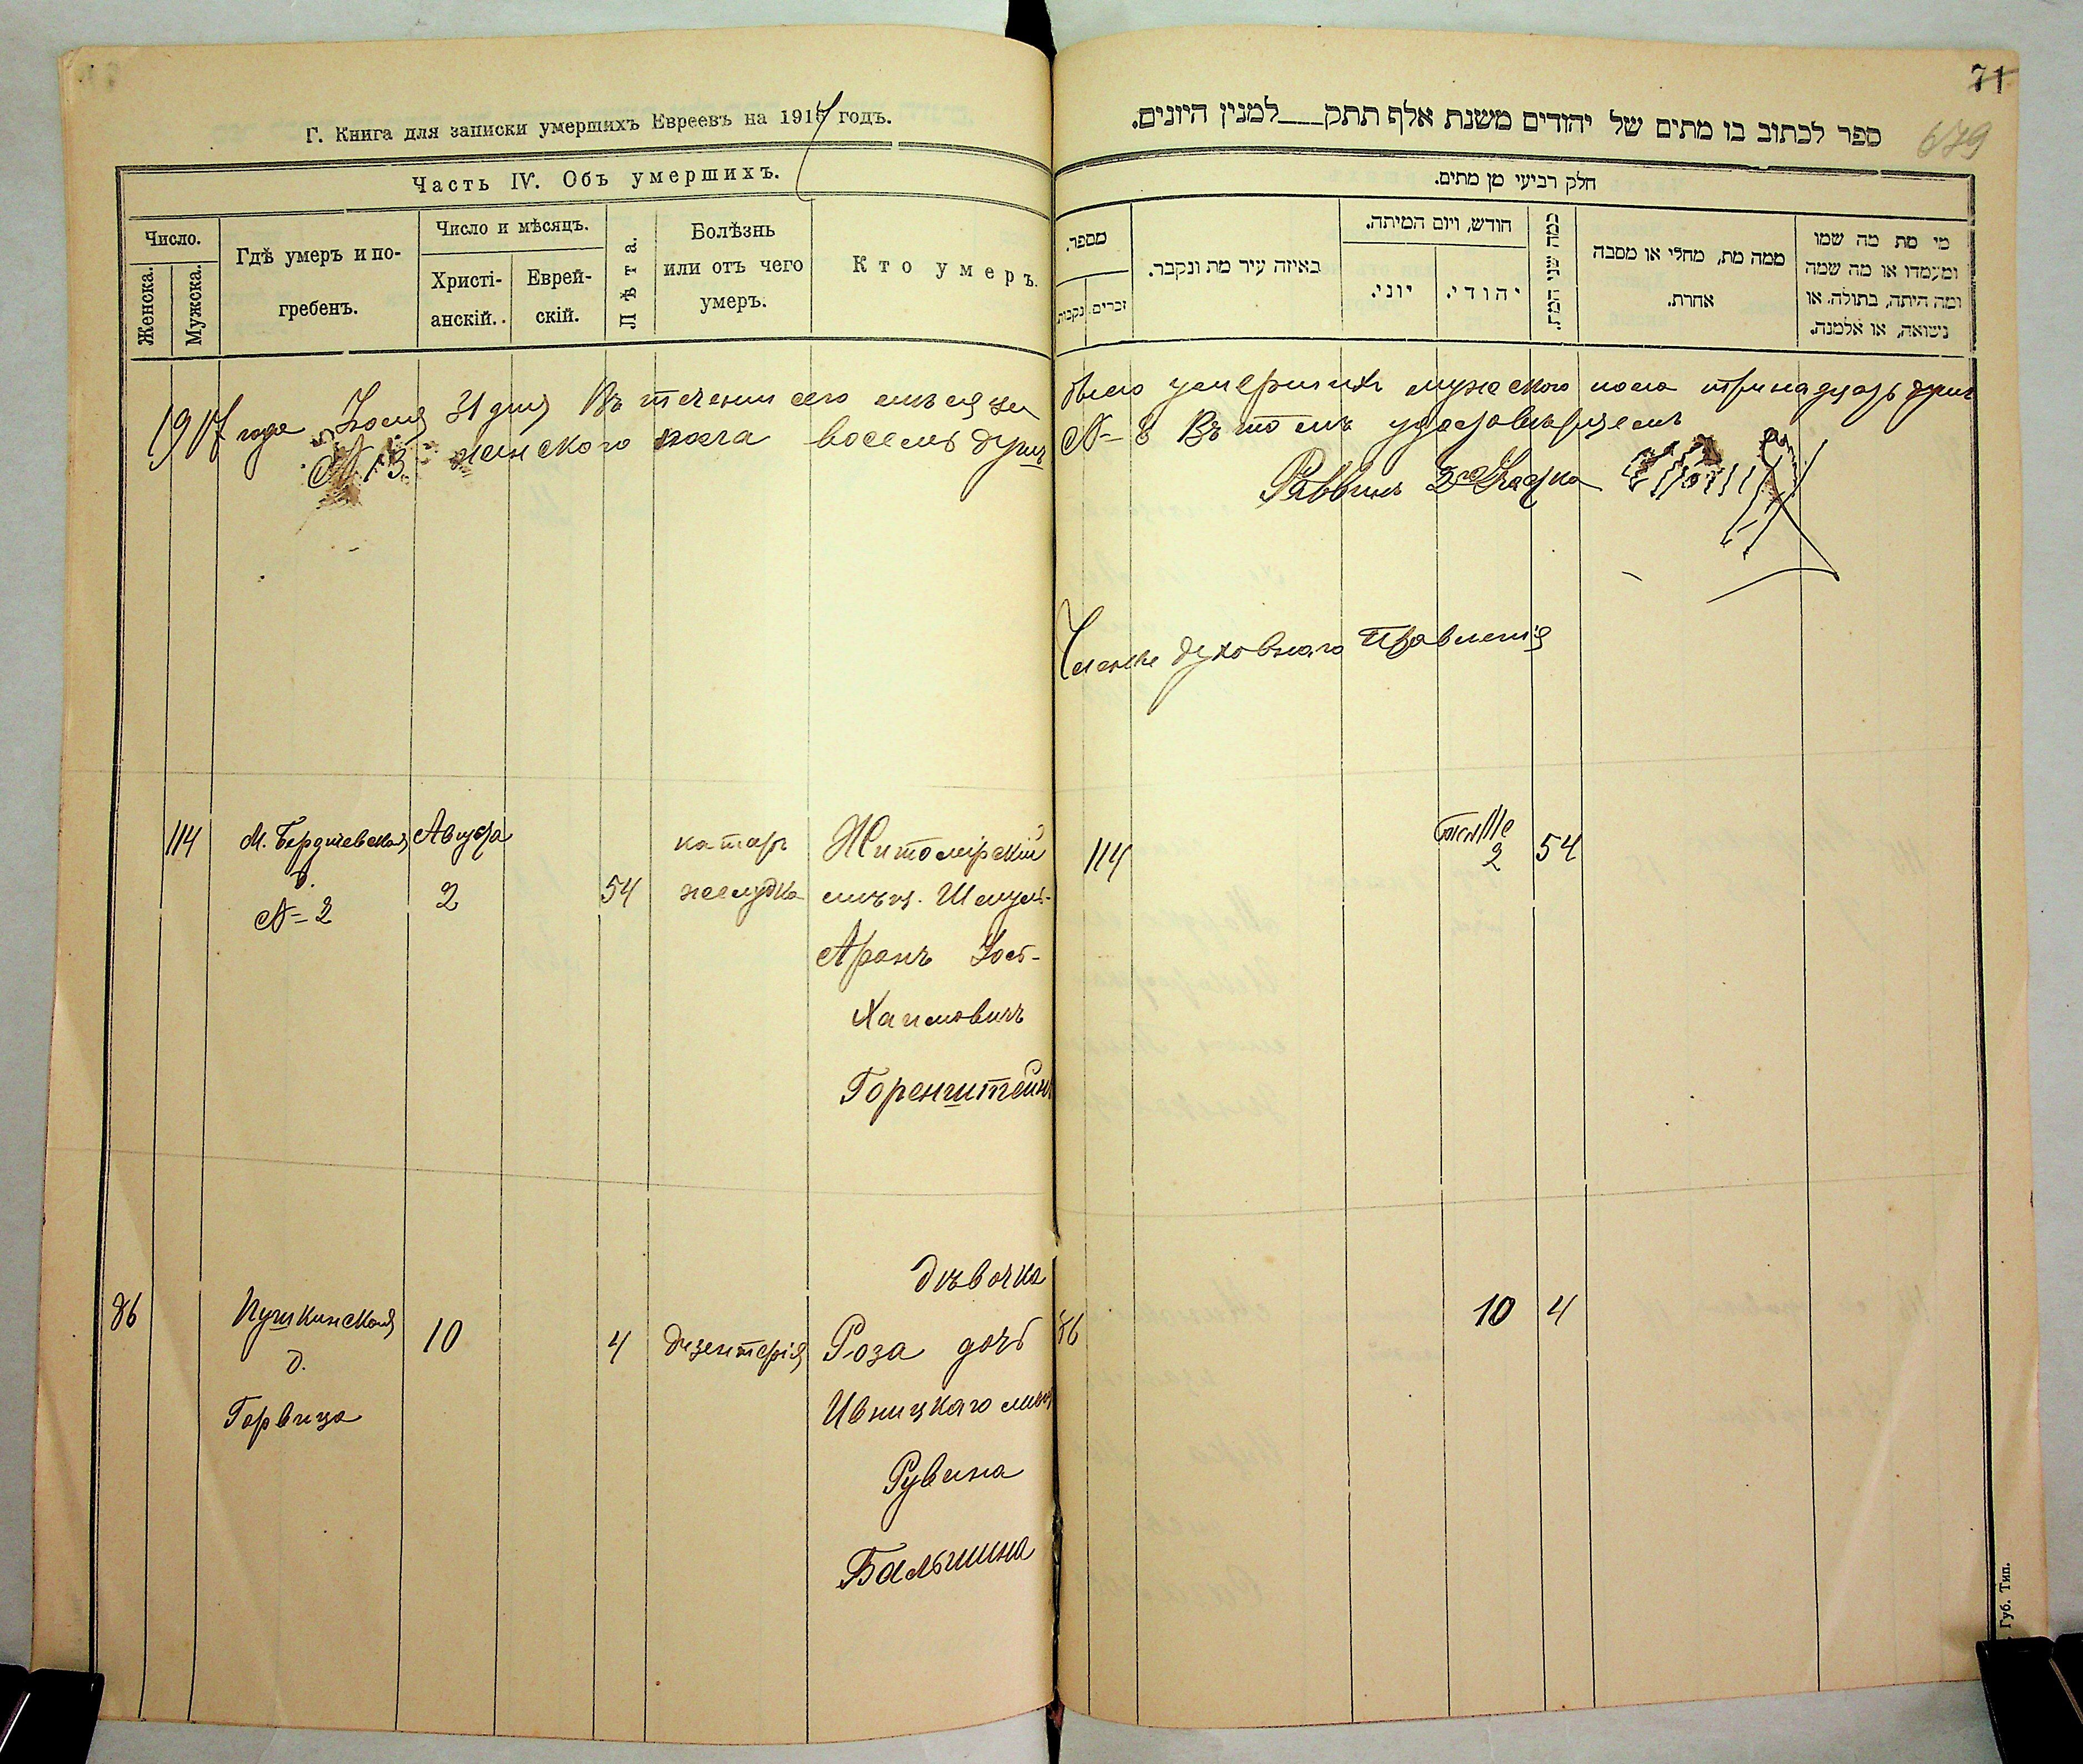 Г. Книга для записки умершихъ Евреевъ на 1917 годъ.
Часть IV. Объ умершихъ.
Число.
Женска.
Мужска.
Гдѣ умеръ и по-
гребенъ.
Число и мѣсяцъ.
Христі-
анскій.
Еврей-
скій.
Лѣта.
Болѣзнь
или отъ чего
умеръ.
Кто умеръ.
1917 года Іюля 31 дня Въ теченіи сего мѣсяца
№ 13 женского пола восемь душъ
114
М. Бердичевская
д.
№ 2
Августа
2
54
катар
желудка
Житомірскій
мѣщ. Шмуль-
Аронъ Іось-
Хаимовичъ
Горенштейнъ
86
Пушкинская
д.
Горвица
10
4
дизентерія
дѣвочка
Роза дочь
Ивницкаго мѣщ
Рувина
Бальшина
71
679
ספר לכתוב בו מתים של יהודים משנת אלף תתק___למנין היונים.
חלק רביעי מן מתים.
מספר.
זכרים.
נקבות
באיזה עיר מת ונקבר.
חודש, ויום המיתה.
יוני.
יהודי.
כמה שני המת.
ממה מת, מחלי או מסבה
אחרת.
מי מת מה שמו
ומעמדו או מה שמה
ומה היתה, בתולה. או
נשואה, או אלמנה.
было умершихъ мужеского пола тринадцать душъ
№ 8 Въ томъ удостовѣряемъ
Раввинъ 2го
Члены духовнаго Правленія
114
2
54
86
10
4
Губ. Тип.